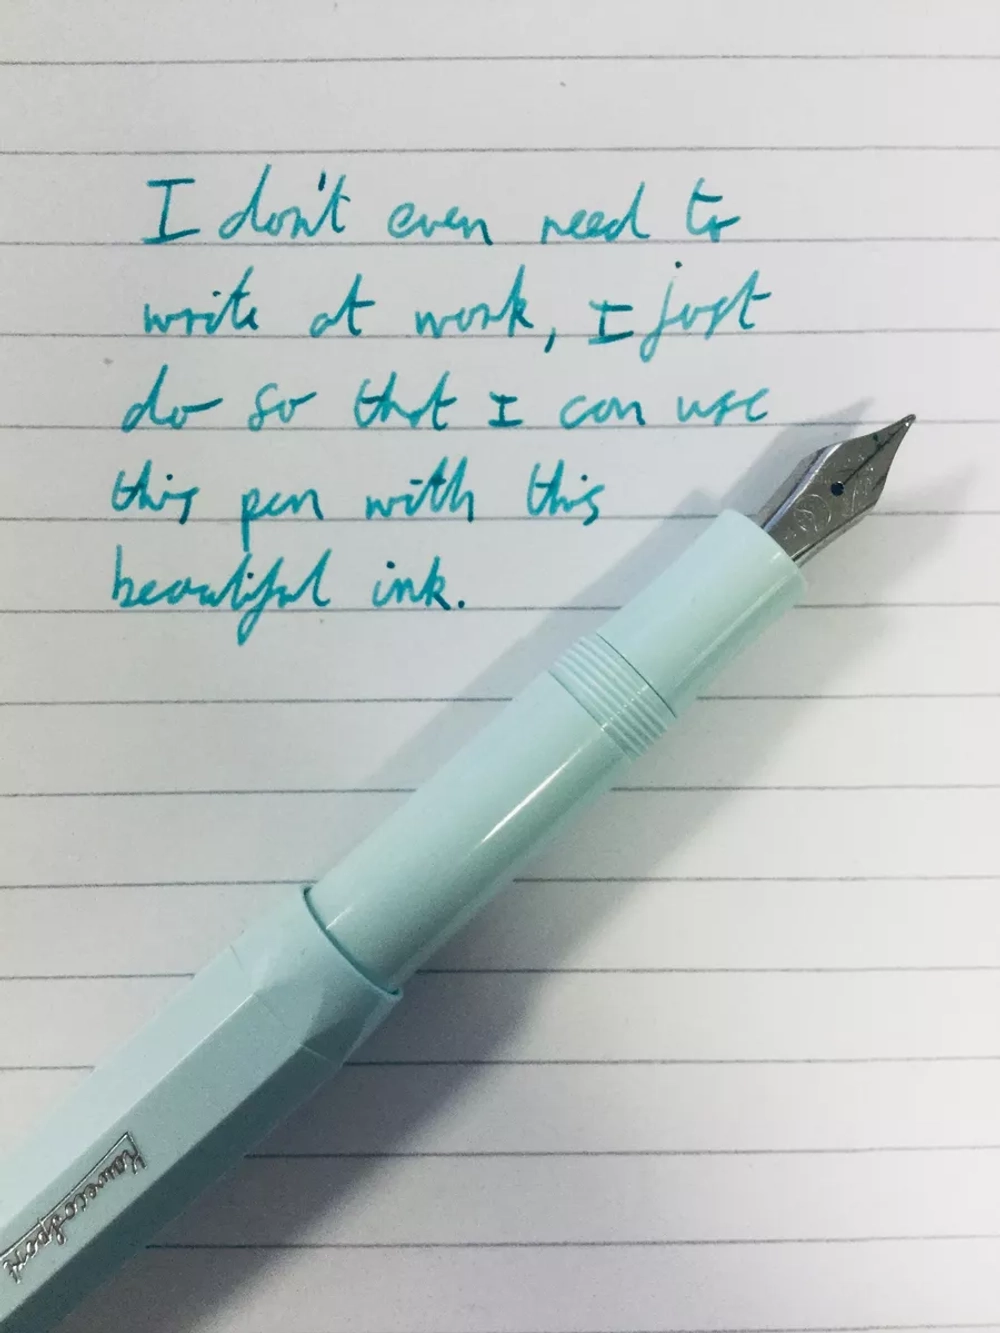 I don't even need to
write at work, I just
do so that I can use
this pen with this
beautiful ink.
Kaweco Sport